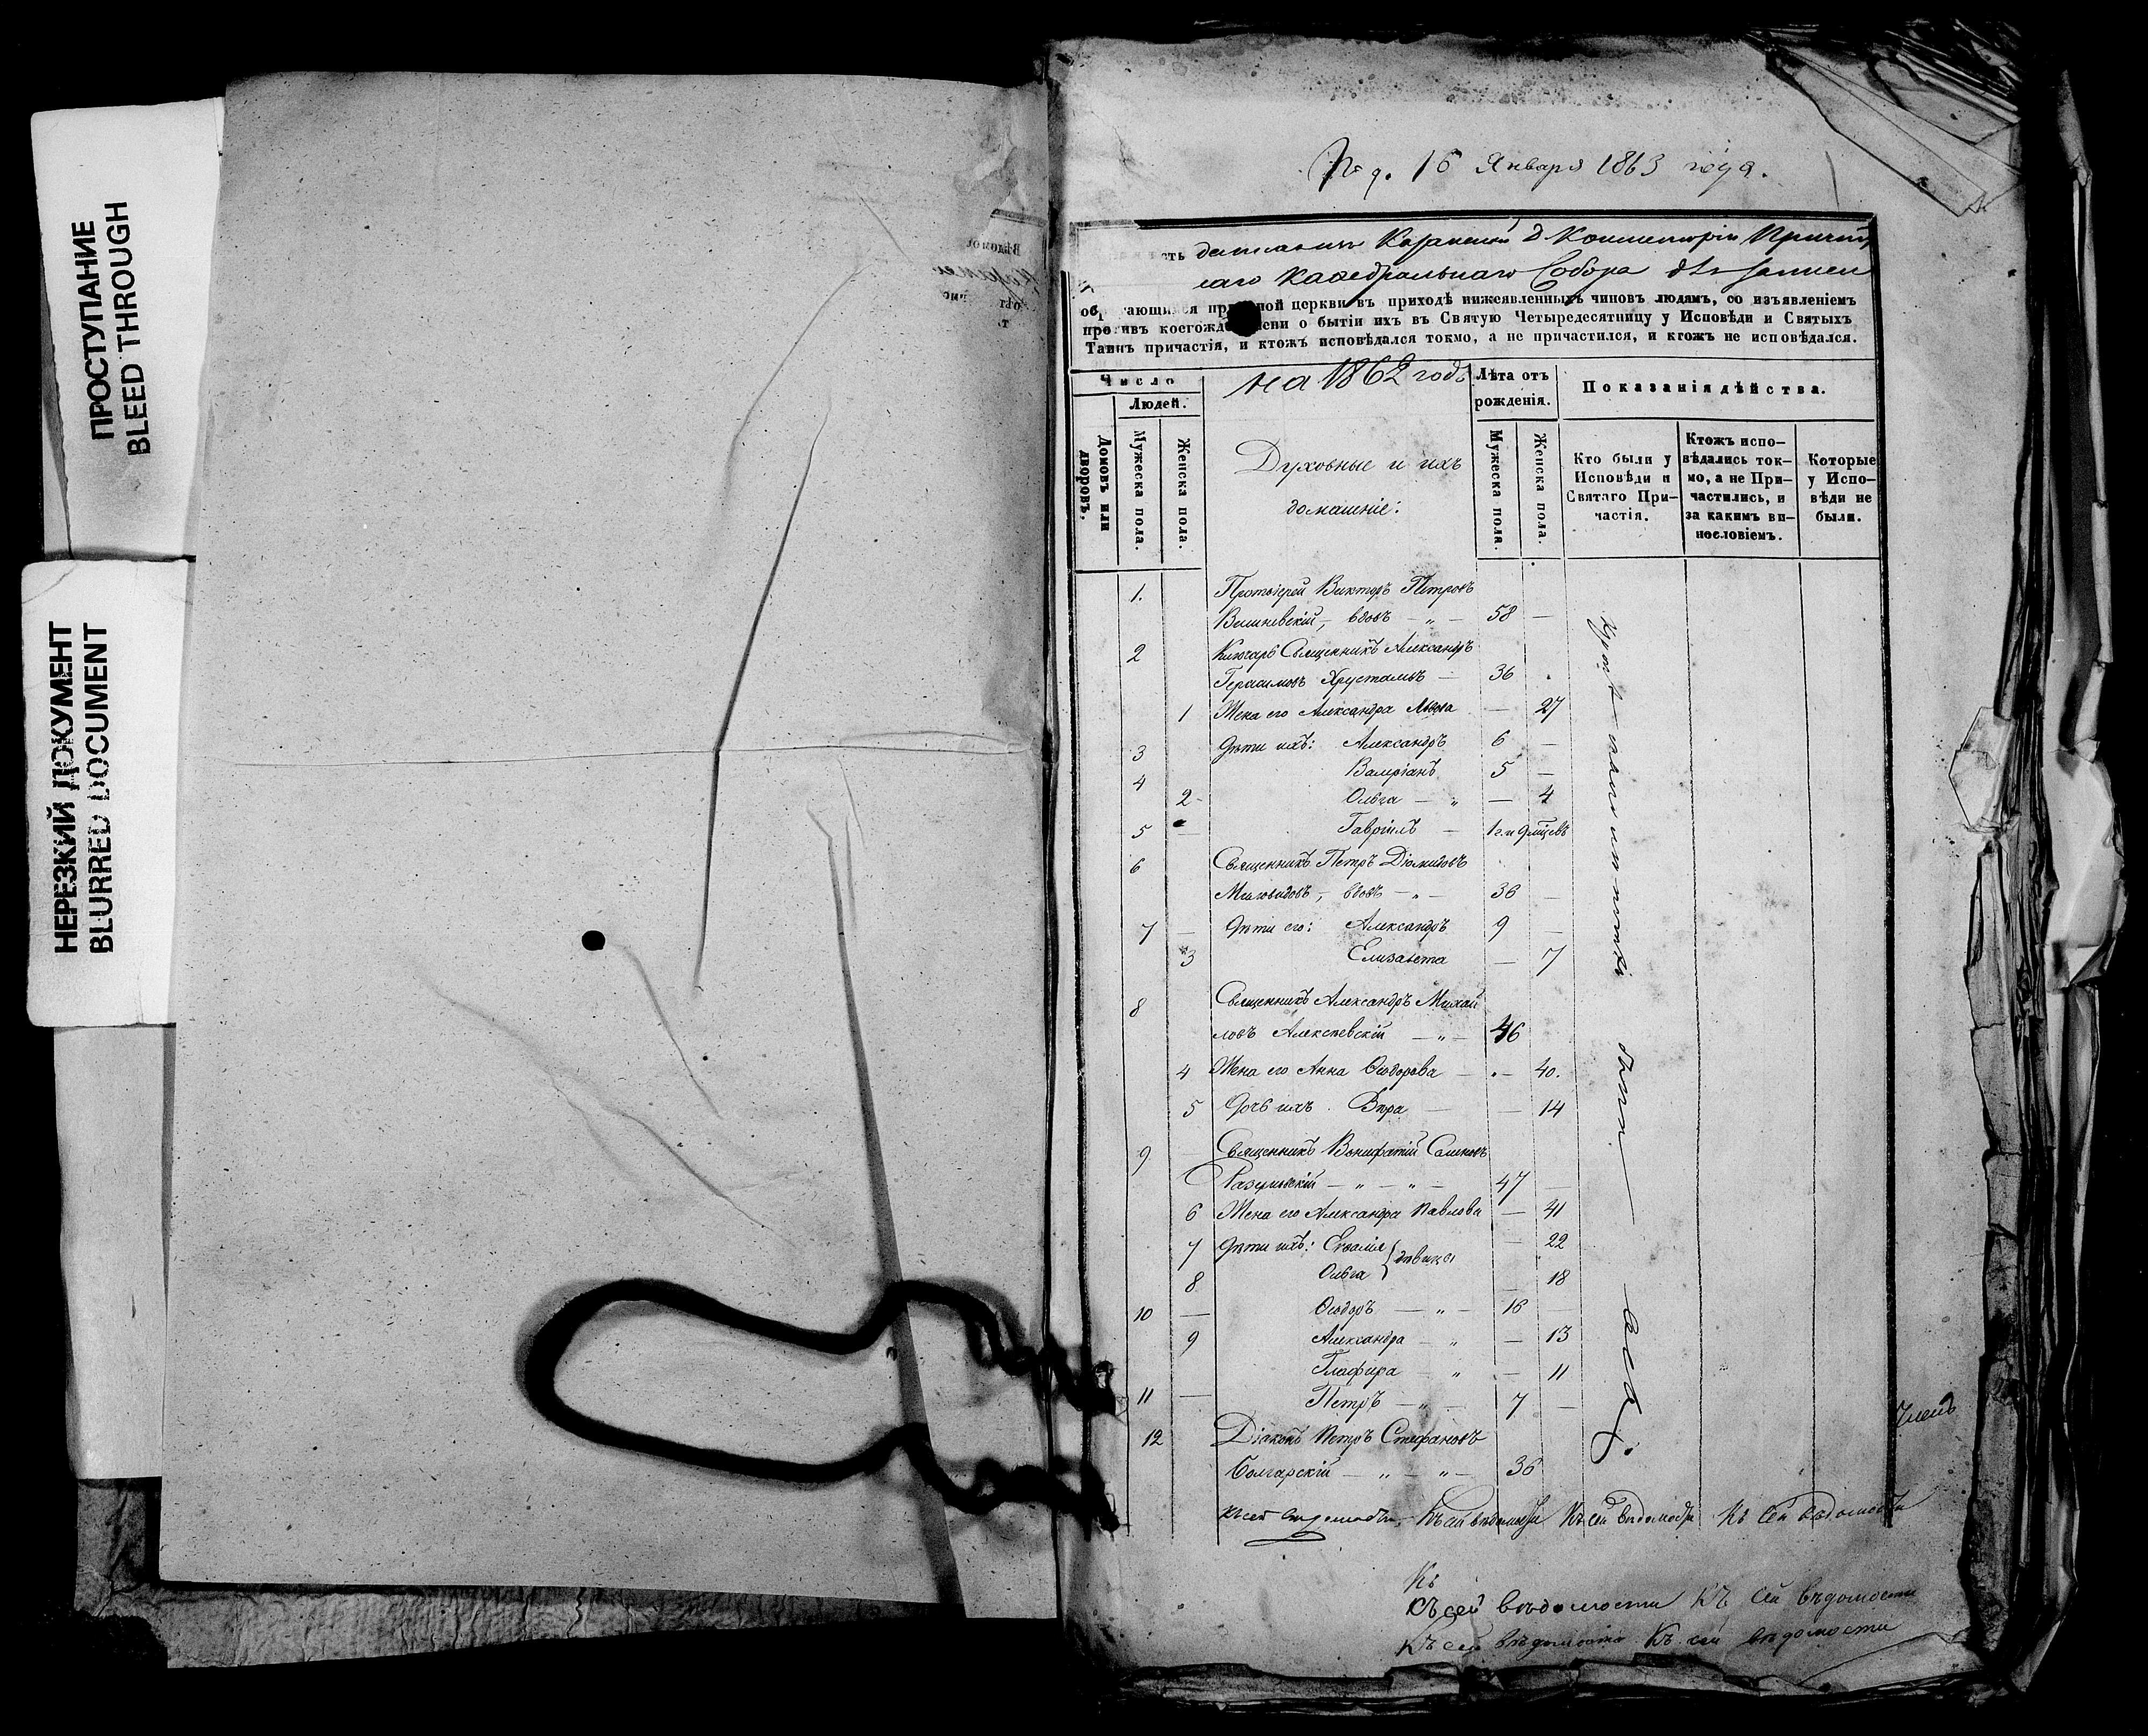 ПРОСТУПАНИЕ
BLEED THROUGH
НЕРЕЗКИЙ ДОКУМЕНТ
BLURRED DOCUMENT
16 Января 1863 года.
Кафедральнаго Собора
церкви въ приходѣ нижеявленныхъ чиновъ людямъ, со изъявленіемъ
противъ коегождо имени о бытіи ихъ въ Святую Четыредесятницу у Исповѣди и Святыхъ
Таинъ причастія, и ктожъ исповѣдался токмо, а не причастился, и ктожъ не исповѣдался.
на 1862 годъ
Число
Людей.
Домовъ или дворовъ.
Мужеска пола.
Женска пола.
Духовные и ихъ
домашніе:
Лѣта отъ
рожденія.
Мужеска пола.
Женска пола.
Показанія дѣйства.
Кто были у
Исповѣди и
Святаго При-
частія.
Ктожъ испо-
вѣдались ток-
мо, а не При-
частились, и
за какимъ ви-
нословіемъ.
Которые
у Испо-
вѣди не
были.
1. Протоіерей Викторъ Петровъ
Вишневскій, вдовъ — „ — 58 —
2 Ключарь Священникъ Александръ
Герасимовъ Хрусталевъ — 36
1 Жена его Александра Львова — 27
3 Дѣти ихъ: Александръ 6 —
4 Валеріанъ 5 —
2 Ольга — „ — 4
5 — Гавріилъ — 1 г. и 9 мѣцевъ
6 Священникъ Петръ Діомидовъ
Миловидовъ, вдовъ — „ — 36 —
7 — Дѣти его: Александръ 9 —
3 Елизавета — 7
8 Священникъ Александръ Михай
ловъ Алексѣевскій — „ — 46
4 Жена его Анна Ѳеодорова — „ — 40.
5 Дочь ихъ Вѣра — — 14
9 Священникъ Вонифатій
— „ — „ — 47 —
6 Жена его Александра Павлова — 41
7 Дѣти ихъ: девицы — 22
8 Ольга — 18
10 — Ѳеодоръ — „ — 16 —
9 Александра — „ — 13
Глафира — „ — 11
11 — Петръ — „ — 7 —
12 Діаконъ Петръ Стефановъ
Болгарскій — „ — „ — 36
Къ сей вѣдомости Къ сей вѣдомости Къ сей вѣдомости
Къ
Къ сей вѣдомости Къ сей вѣдомости
Къ сей вѣдомости Къ сей вѣдомости